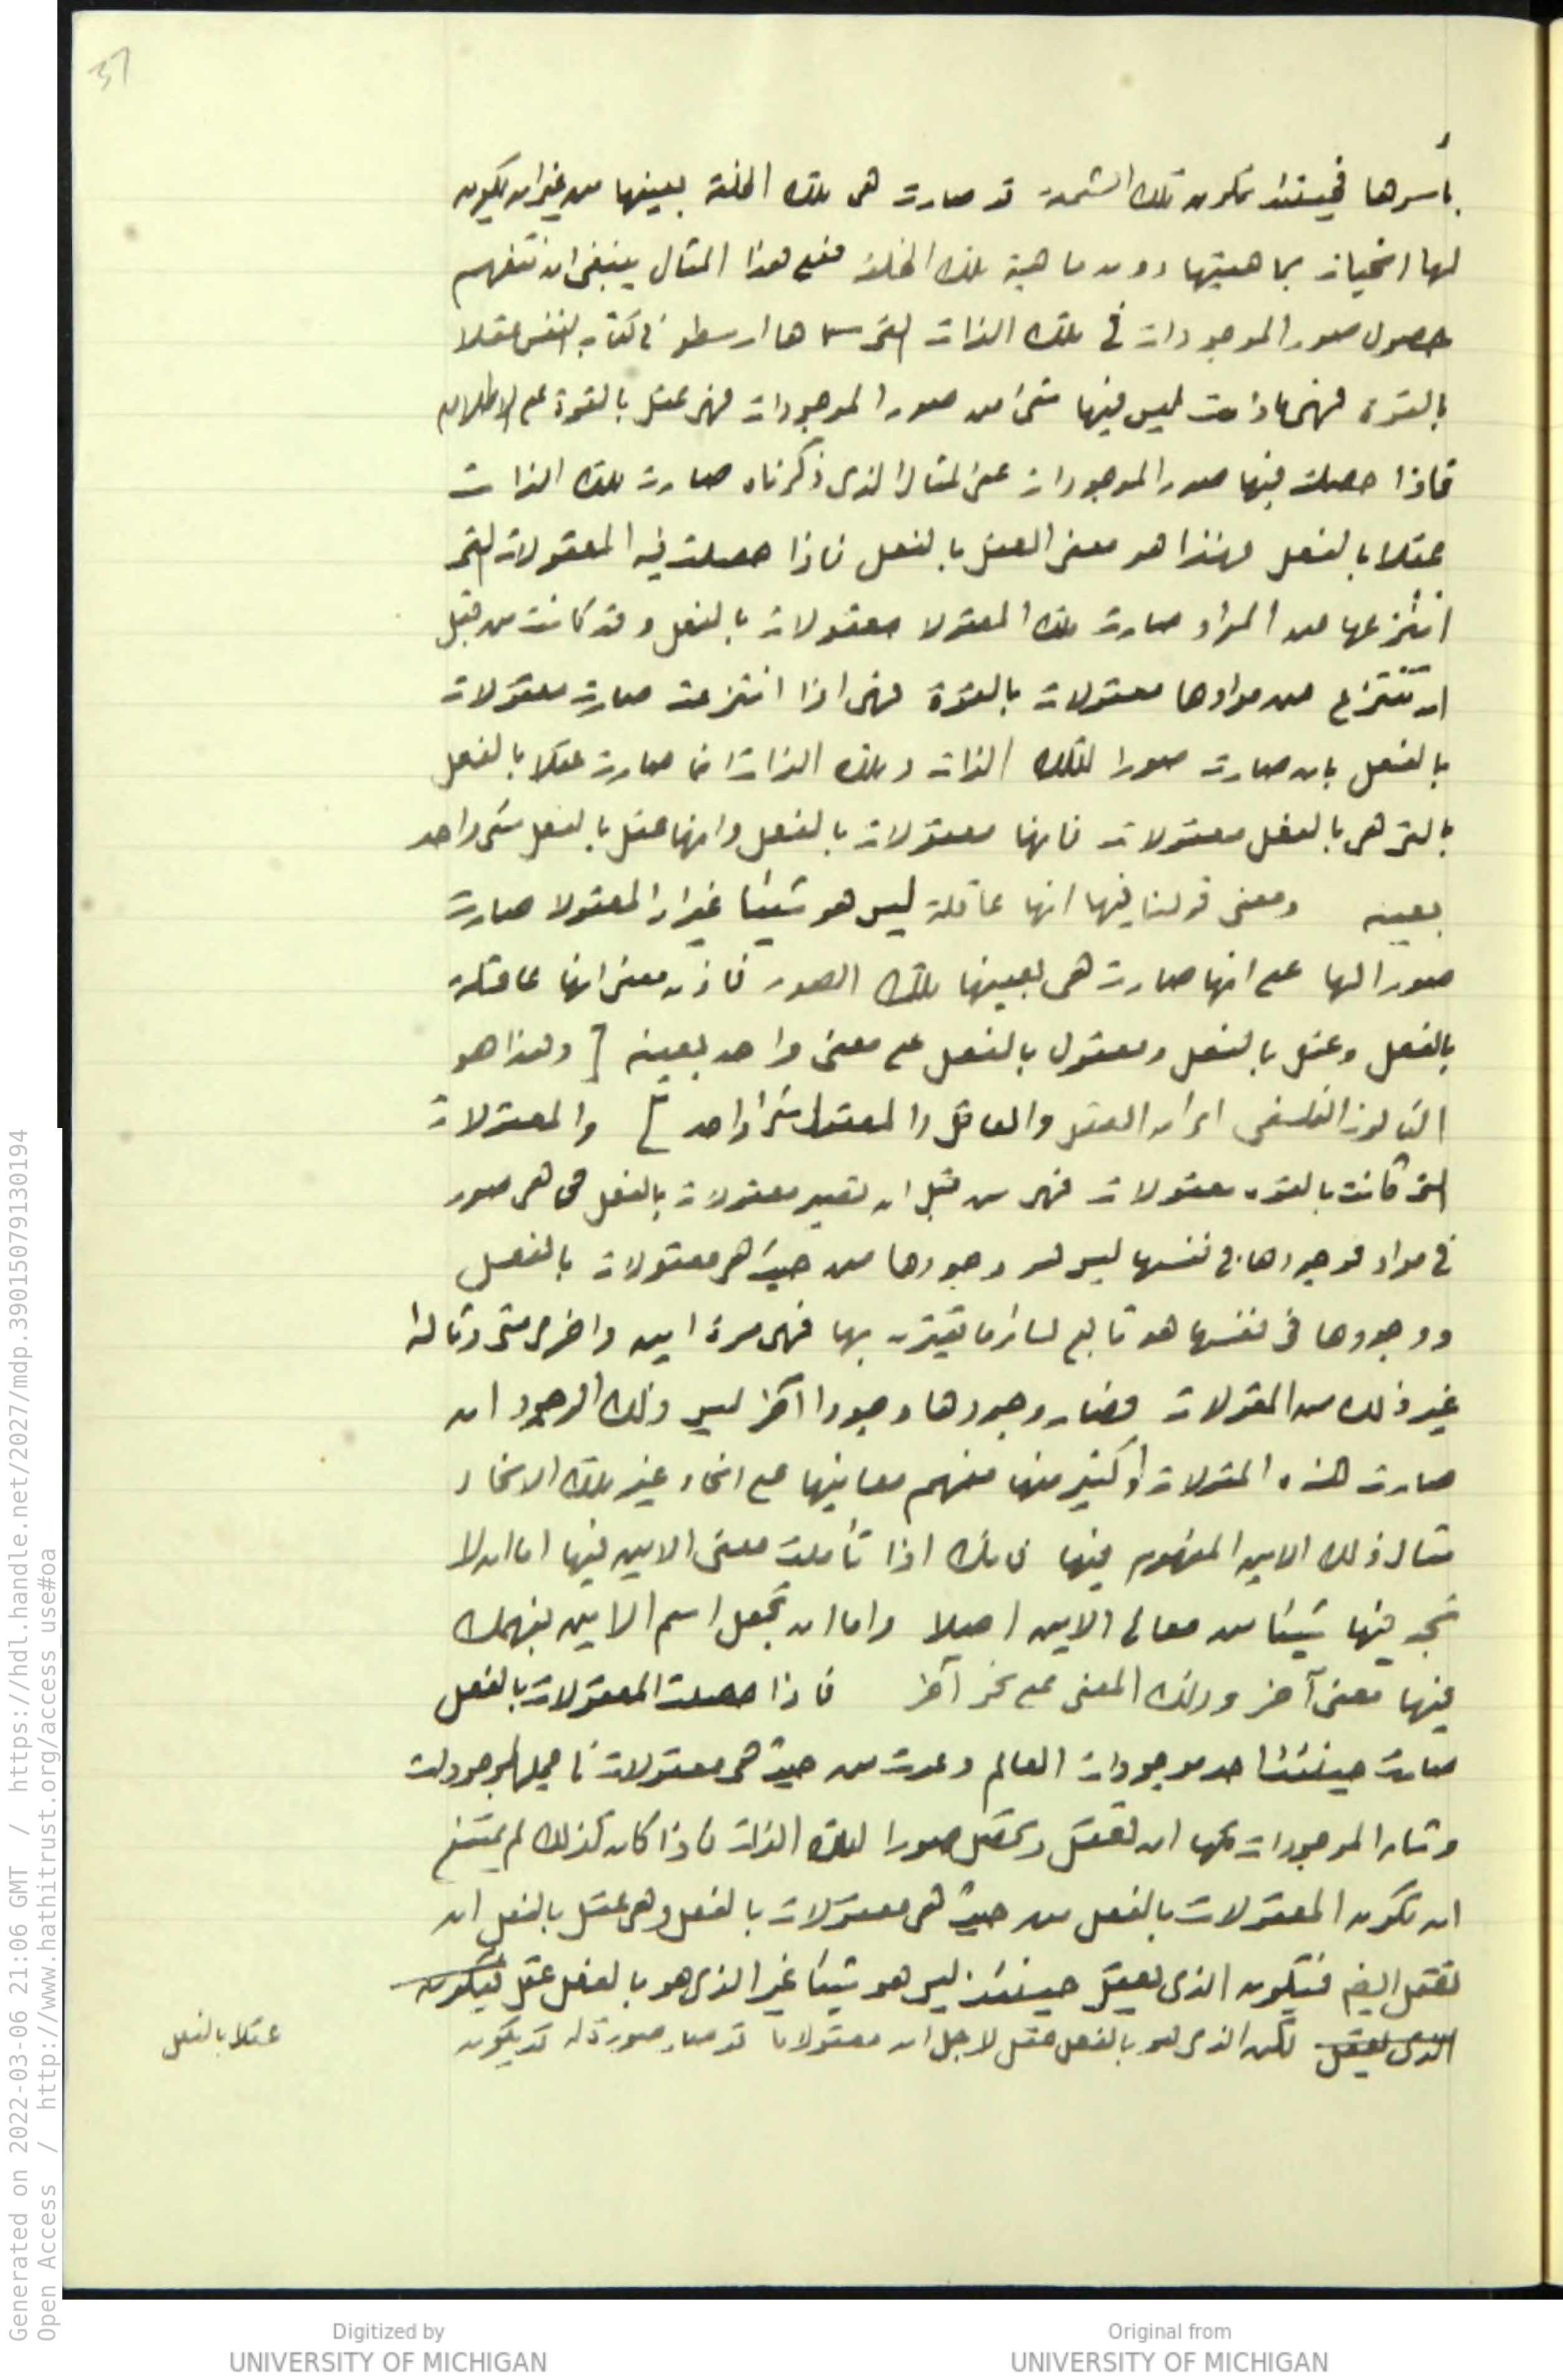 37
بأسرها فحينئذ تكون تلك الشمعة قد صارت هى تلك الخلقة بعينها من غير ان يكون
لها انحياز بماهيتها دون ماهية تلك الخلقة فعلى هذا المثال ينبغى ان تتفهم
حصول صور الموجودات فى تلك الذات التى سماها ارسطو فى كتاب النفس عقلا
بالقوة فهى ما دامت ليس فيها شئ من صور الموجودات فهى عقل بالقوة على الاطلاق
فاذا حصلت فيها صور الموجودات على المثال الذى ذكرناه صارت تلك الذات
عقلا بالفعل فهذا هو معنى العقل بالفعل فاذا حصلت فيه المعقولات التى
انتزعها عن المواد صارت تلك المعقولا معقولات بالفعل وقد كانت من قبل
ان تنتزع من موادها معقولات بالقوة فهى اذا انتزعت صارت معقولات
بالفعل بان صارت صورا لتلك الذات وتلك الذات انما صارت عقلا بالفعل
بالتى هى بالفعل معقولات فانها معقولات بالفعل وانها عقل بالفعل شئ واحد
بعينه ومعنى قولنا فيها انها عاقلة ليس هو شيئا غير ان المعقولا صارت
صورا لها على انها صارت هى بعينها تلك الصور فاذن معنى انها عاقلة
بالفعل وعقل بالفعل ومعقول بالفعل على معنى واحد بعينه [ وهذا هو
الثالوث الفلسفى اى ان العقل والعاقل والمعقول شئ واحد ] والمعقولات
التى كانت بالقوة معقولات فهى من قبل ان تصير معقولات بالفعل هى صور
فى مواد فوجودها فى نفسها ليس هو وجودها من حيث هى معقولات بالفعل
ووجودها فى نفسها هو تابع لسائر ما يقترن بها فهى مرة اين واخرى متى وتالة
غير ذلك من المقولات فصار وجودها وجودا آخر ليس ذلك الوجود ان
صارت هذه المقولات أو كثير منها تفهم معانيها على انحاء غير تلك الانحاء
مثال ذلك الاين المفهوم فيها فانك اذا تأملت معنى الاين فيها اما ان لا
تجد فيها شيئا من معانى الاين اصلا واما ان تجعل اسم الاين يفهمك
فيها معنى آخر وذلك المعنى على نحو آخر فاذا حصلت المعقولات بالفعل
صارت حينئذ احد موجودات العالم وعدت من حيث هى معقولات فى جملة الموجودات
وشان الموجودات كلها ان تعقل وتحصل صورا لتلك الذات فاذا كان كذلك لم يمتنع
ان تكون المعقولات بالفعل من حيث هى معقولات بالفعل وهى عقل بالفعل ان
تعقل ايضا فيكون الذى يعقل حينئذ ليس هو شيئا غير الذى هو بالفعل عقل فيكون
الذى يعقل لكن الذى هو بالفعل عقل لاجل ان معقولا ما قد صار صورة له قد يكون
عقلا بالفعل
Generated on 2022-03-06 21:06 GMT / https://hdl.handle.net/2027/mdp.39015079130194
Open Access / http://www.hathitrust.org/access_use#oa
Digitized by
UNIVERSITY OF MICHIGAN
Original from
UNIVERSITY OF MICHIGAN